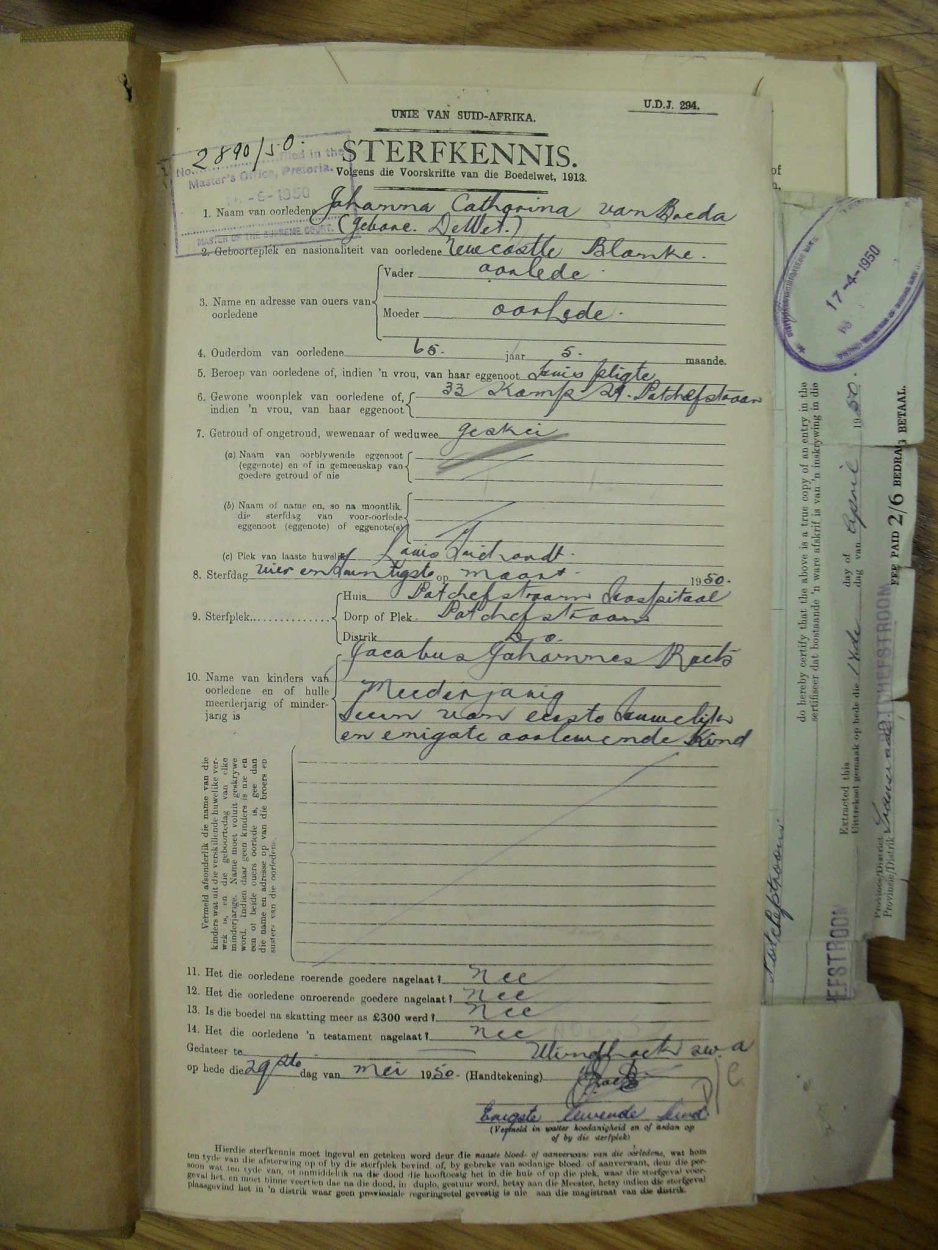 U.D.J. 294.
UNIE VAN SUID-AFRIKA.
2890/50.
STERFKENNIS.
Volgens die Voorskrifte van die Boedelwet, 1913.
No. Filed in the
Master's Office, Pretoria.
-6-1950
MASTER OF THE SUPREME COURT.
1. Naam van oorledene Johanna Catharina van Breda
(gebore. De Wet.)
2. Geboorteplek en nasionaliteit van oorledene Newcastle Blanke.
3. Name en adresse van ouers van oorledene
Vader oorlede.
Moeder oorlede.
4. Ouderdom van oorledene 65. jaar 5. maande.
5. Beroep van oorledene of, indien 'n vrou, van haar eggenoot Huis pligte
6. Gewone woonplek van oorledene of, indien 'n vrou, van haar eggenoot
33 Kamp St. Potchefstroom
7. Getroud of ongetroud, wewenaar of weduwee geskei
(a) Naam van oorblywende eggenoot
(eggenote) en of in gemeenskap van
goedere getroud of nie
(b) Naam of name en, so na moontlik,
die sterfdag van voor-oorlede
eggenoot (eggenote) of eggenote(s)
(c) Plek van laaste huwelik Louis Trichardt.
8. Sterfdag vier en twintigste op Maart 1950.
9. Sterfplek
Huis Potchefstroom Hospitaal
Dorp of Plek Potchefstroom
Distrik Do.
10. Name van kinders van
oorledene en of hulle
meerderjarig of minder-
jarig is
Jacobus Johannes
Meederjarig
Seun van eerste huwelijk
en enigste oorlewende Kind
Vermeld afsonderlik die name van die
kinders wat uit die verskillende huwelike ver-
wek is, en die geboortedag van elke
minderjarige. Name moet voluit geskrywe
word. Indien daar geen kinders is nie en
een of beide ouers oorlede is, gee dan
die name en adresse op van die broers en
susters van die oorledene.
11. Het die oorledene roerende goedere nagelaat? nee
12. Het die oorledene onroerende goedere nagelaat? nee
13. Is die boedel na skatting meer as £300 werd? nee
14. Het die oorledene 'n testament nagelaat? nee
Gedateer te Windhoek S.W.A
op hede die 29ste dag van Mei 1950. (Handtekening)
Enigste lewende kind
(Vermeld in watter hoedanigheid en of aldan op
of by die sterfplek)
Hierdie sterfkennis moet ingevul en geteken word deur die naaste bloed- of aanverwant van die oorledene, wat hom
ten tyde van die afsterwing op of by die sterfplek bevind, of, by gebreke van sodanige bloed- of aanverwant, deur die per-
soon wat ten tyde van, of onmiddellik na die dood die hooftoesig het in die huis of op die plek, waar die sterfgeval voor-
geval het, en moet binne veertien dae na die dood, in duplo, gestuur word, hetsy aan die Meester, hetsy indien die sterfgeval
plaasgevind het in 'n distrik waar geen provinsiale regeringsetel gevestig is nie aan die magistraat van die distrik.
17-4-1950
do hereby certify that the above is a true copy of an entry in the
sertifiseer dat bostaande 'n ware afskrif is van 'n inskrywing in die
Extracted this day of April 1950.
Uittreksel gemaak op hede die dag van
Province/District
Provinsie/Distrik
FEE PAID 2/6 BEDRAG BETAAL.
POTCHEFSTROOM
Potchefstroom
EFSTROOM